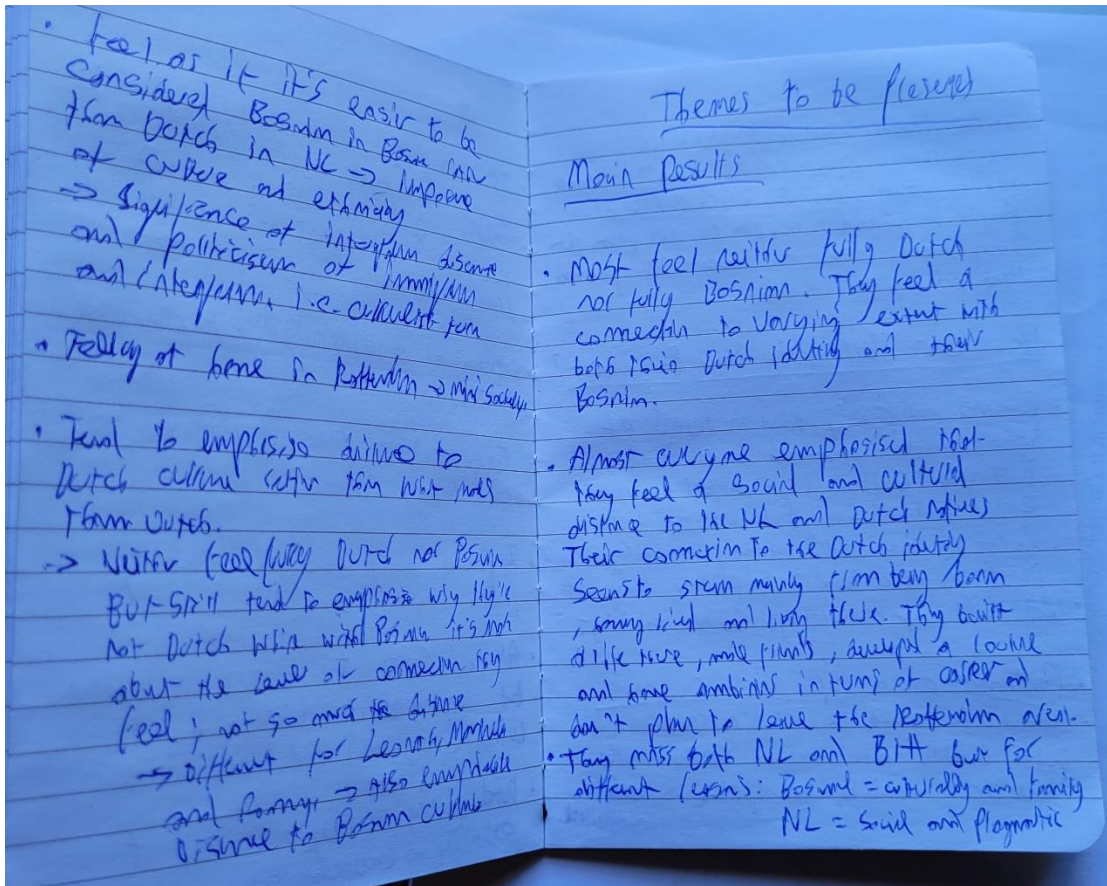 • Feel as if it's easier to be
Considered Bosnian in Bosnia
than Dutch in NL →
of culture and ethnicity
→ Significance of discourse
and politicisum of
and i.e.
• of home in Rotterdam → mini society
• Tend to distance to
Dutch culture than what makes
them Dutch.
→ Neither feel fully Dutch nor Bosnian
But still tend to why they're
not Dutch while with Bosnian it's
about the level of connection they
feel; not so much the distance
→ Different for
and → also
Distance to Bosnian culture
Themes to be
Main Results
• Most feel neither fully Dutch
nor fully Bosnian. They feel a
connection to varying extent with
both their Dutch identity and their
Bosnian.
• Almost everyone emphasised that
they feel a social and cultural
distance to the NL and Dutch natives
Their connection to the Dutch identity
seems to stem mainly from being born
, and living there. They built
a life here, made friends,
and have in terms of career and
don't plan to leave the Rotterdam area.
• They miss both NL and BiH but for
different reasons: Bosnia = culturally and family
NL = social and